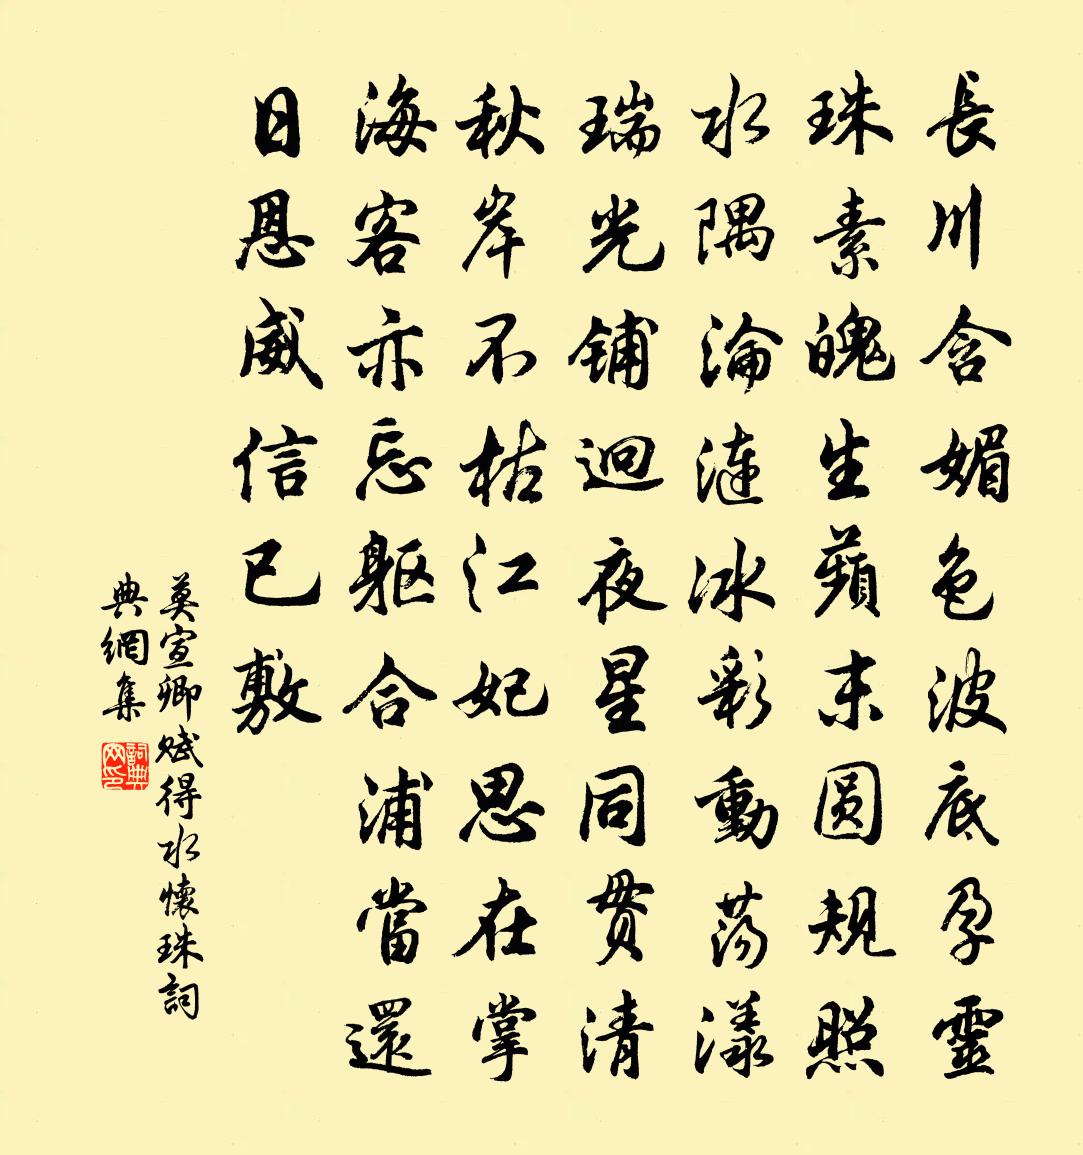 長川含媚色波底孕靈
珠素魄生蘋末圆規照
水隅淪漣冰彩動蕩漾
瑞光鋪迥夜星同貫清
秋岸不枯江妃思在掌
海客亦忘軀合浦當還
日恩威信已敷
莫宣卿賦得水懷珠詞
典網集
詞典网印